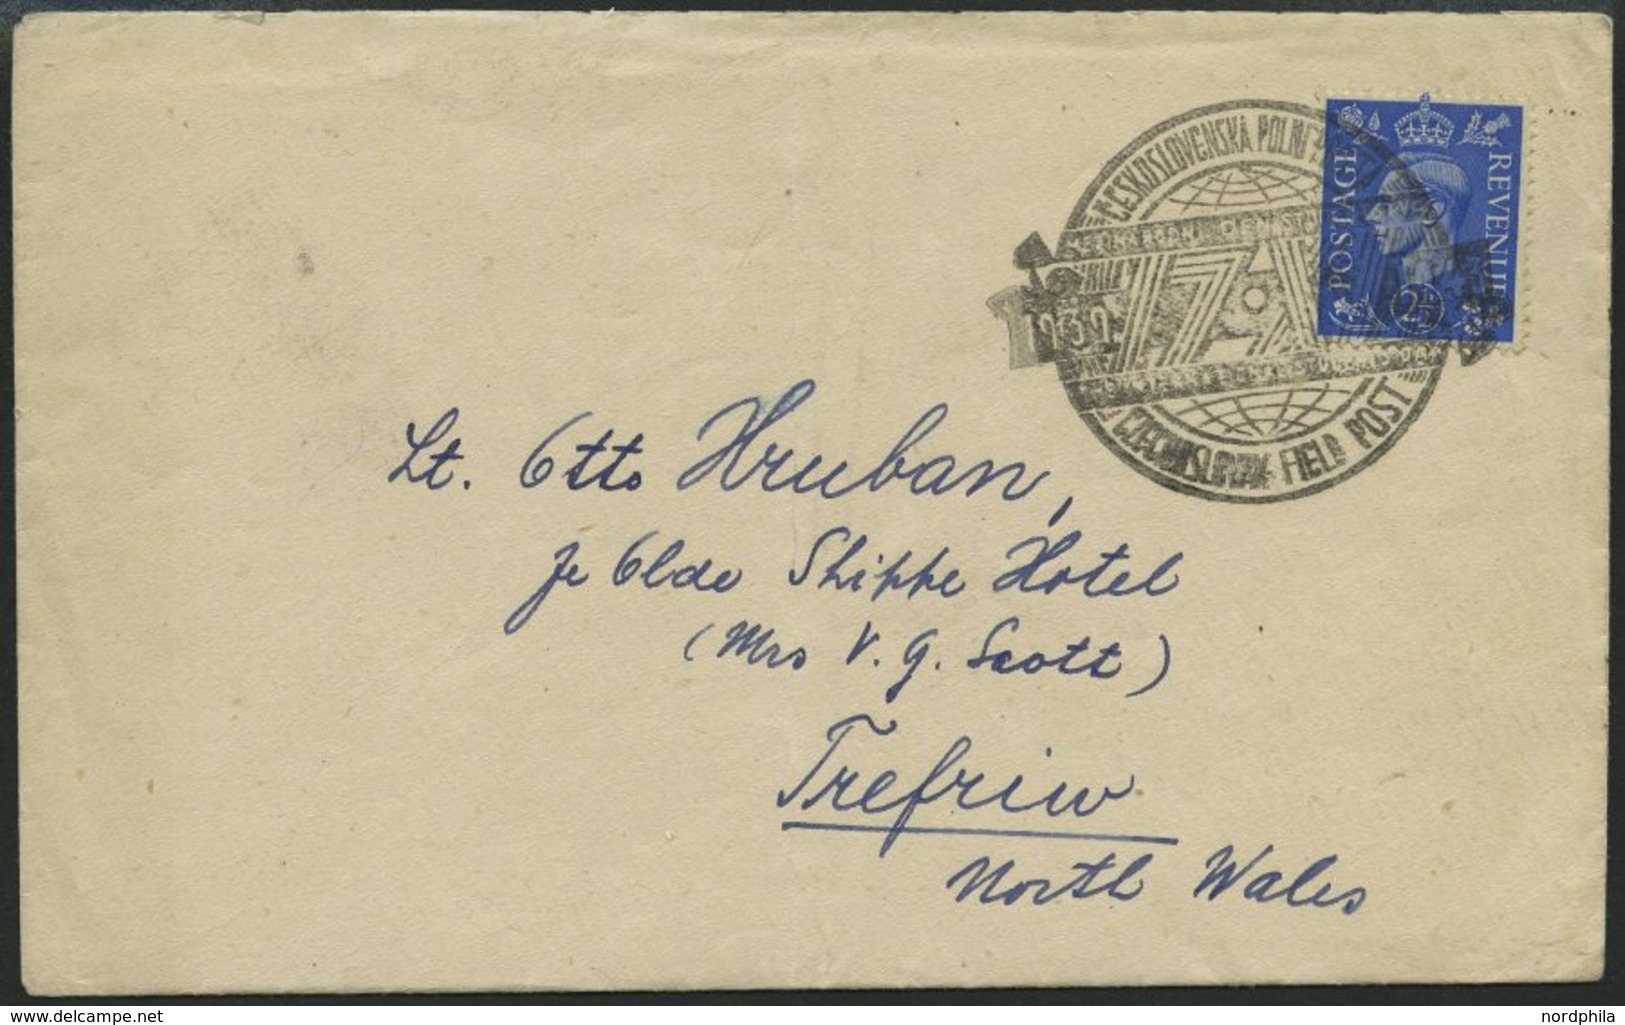 ČESKOSLOVENSKÁ POLNÍ
1939
17
CZECHOSLOVAK FIELD POST
POSTAGE
REVENUE
2½
Lt. Otto Hruban,
Ye Olde Shippe Hotel
(Mrs V. G. Scott)
Trefriw
North Wales
www.delcampe.net
nordphila